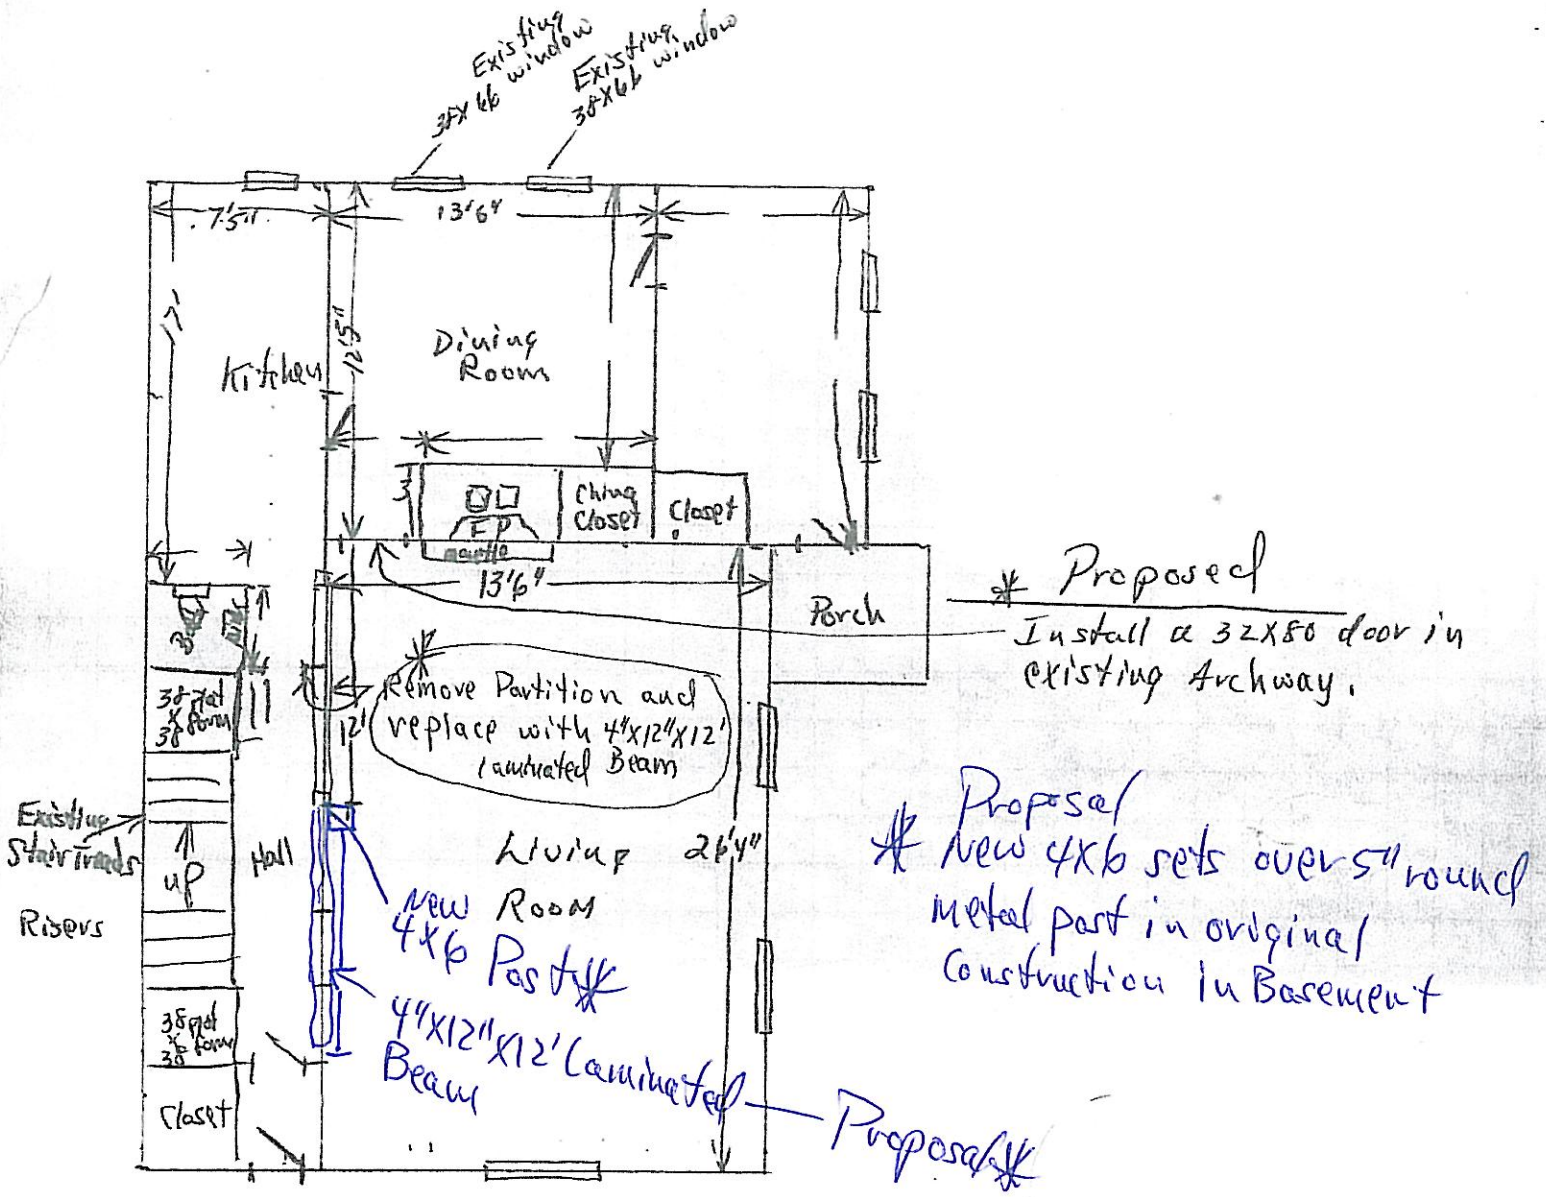 Existing
38X66 window
Existing
38X66 window
7'5"
13'6"
17'
12'5"
Kitchen
Dining
Room
3'
China
Closet
Closet
FP
mantle
13'6"
Porch
* Proposed
Install a 32X80 door in
existing Archway.
38 plat
X form
38
12'
* Remove Partition and
replace with 4"X12"X12'
Laminated Beam
Existing
Stair Treads
Risers
up
Hall
Living
Room
26'4"
New
4X6
Post *
4"X12"X12' Laminated
Beam
Proposal *
Proposal
* New 4X6 sets over 5" round
metal post in original
Construction in Basement
38 plat
X form
38
Closet